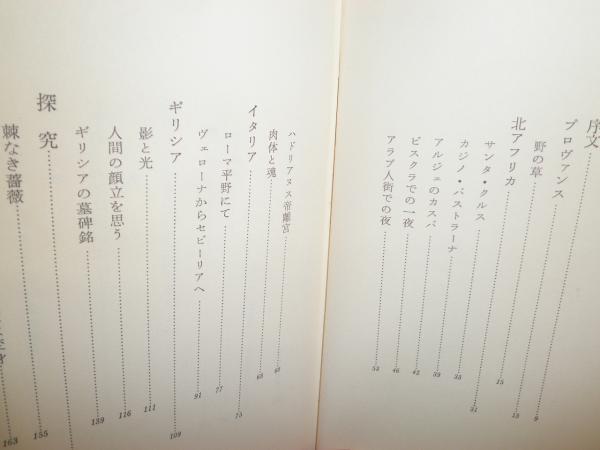 序文 9
プロヴァンス 13
野の草 15
北アフリカ 31
サンタ・クルス 35
カジノ・バストラーナ 39
アルジェのカスバ 42
ビスクラでの一夜 46
アラブ人街での夜 53
ハドリアヌス帝離宮
肉体と魂
イタリア 75
ローマ平野にて 77
ヴェローナからセビーリアへ 91
ギリシア 109
影と光 111
人間の顔立を思う 116
ギリシアの墓碑銘 139
探究
棘なき薔薇 155
163